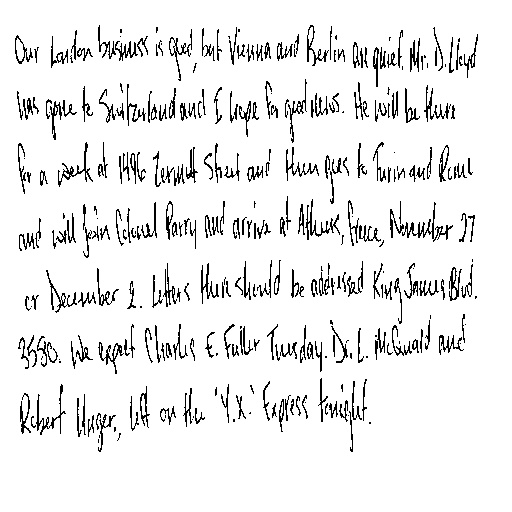 Our London business is good, but Vienna and Berlin are quiet. Mr. D. Lloyd
has gone to Switzerland and I hope for good news. He will be there
for a week at 1496 Zermott Street and then goes to Turin and Rome
and will join Colonel Parry and arrive at Athens, Greece, November 27
or December 2. Letters there should be addressed King James Blvd.
3580. We expect Charles E. Fuller Tuesday. Dr. L. McQuaid and
Robert Unger, left on the 'Y.X.' Express tonight.